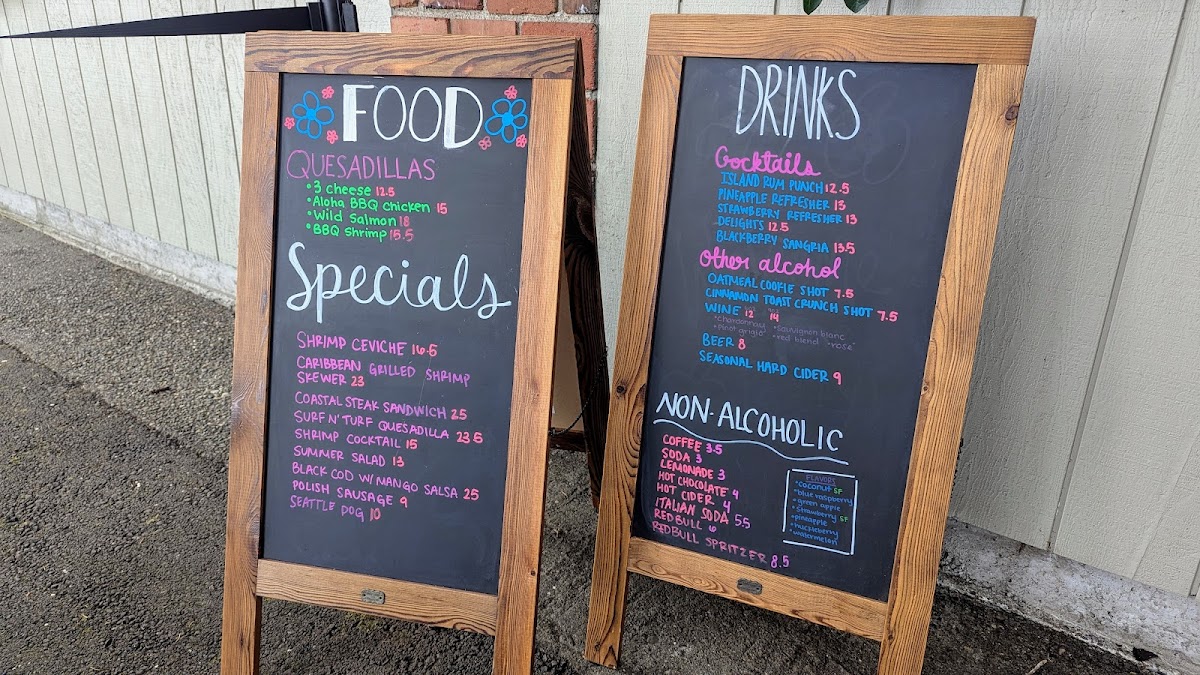 FOOD
QUESADILLAS
• 3 cheese 12.5
• Aloha BBQ chicken 15
• Wild Salmon 18
• BBQ Shrimp 15.5
Specials
SHRIMP CEVICHE 16.5
CARIBBEAN GRILLED SHRIMP
SKEWER 23
COASTAL STEAK SANDWICH 25
SURF N' TURF QUESADILLA 23.5
SHRIMP COCKTAIL 15
SUMMER SALAD 13
BLACK COD W/ MANGO SALSA 25
POLISH SAUSAGE 9
SEATTLE DOG 10
DRINKS
Cocktails
ISLAND RUM PUNCH 12.5
PINEAPPLE REFRESHER 13
STRAWBERRY REFRESHER 13
DELIGHTS 12.5
BLACKBERRY SANGRIA 13.5
Other alcohol
OATMEAL COOKIE SHOT 7.5
CINNAMON TOAST CRUNCH SHOT 7.5
WINE 12 14
• Chardonnay • Sauvignon blanc
• Pinot grigio • red blend • rose
BEER 8
SEASONAL HARD CIDER 9
NON-ALCOHOLIC
COFFEE 3.5
SODA 3
LEMONADE 3
HOT CHOCOLATE 4
HOT CIDER 4
ITALIAN SODA 5.5
REDBULL 6
REDBULL SPRITZER 8.5
FLAVORS
• coconut SF
• blue raspberry
• green apple
• Strawberry SF
• pineapple
• huckleberry
• watermelon